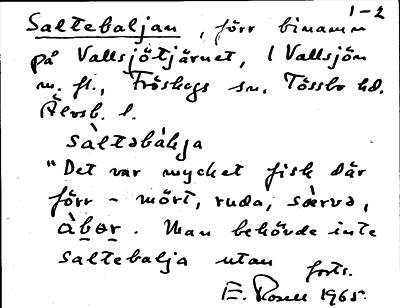 1-2
Saltebaljan, förr binamn
på Vallsjötjärnet, i Vallsjön
m. fl., Fröskogs sn. Tössbo hd.
Älvsb. l.
sàltəbàlja
"Det var mycket fisk där
förr - mört, ruda, sàrvə,
àbər. Man behövde inte
saltebalja utan
forts.
E. Rosell 1965.